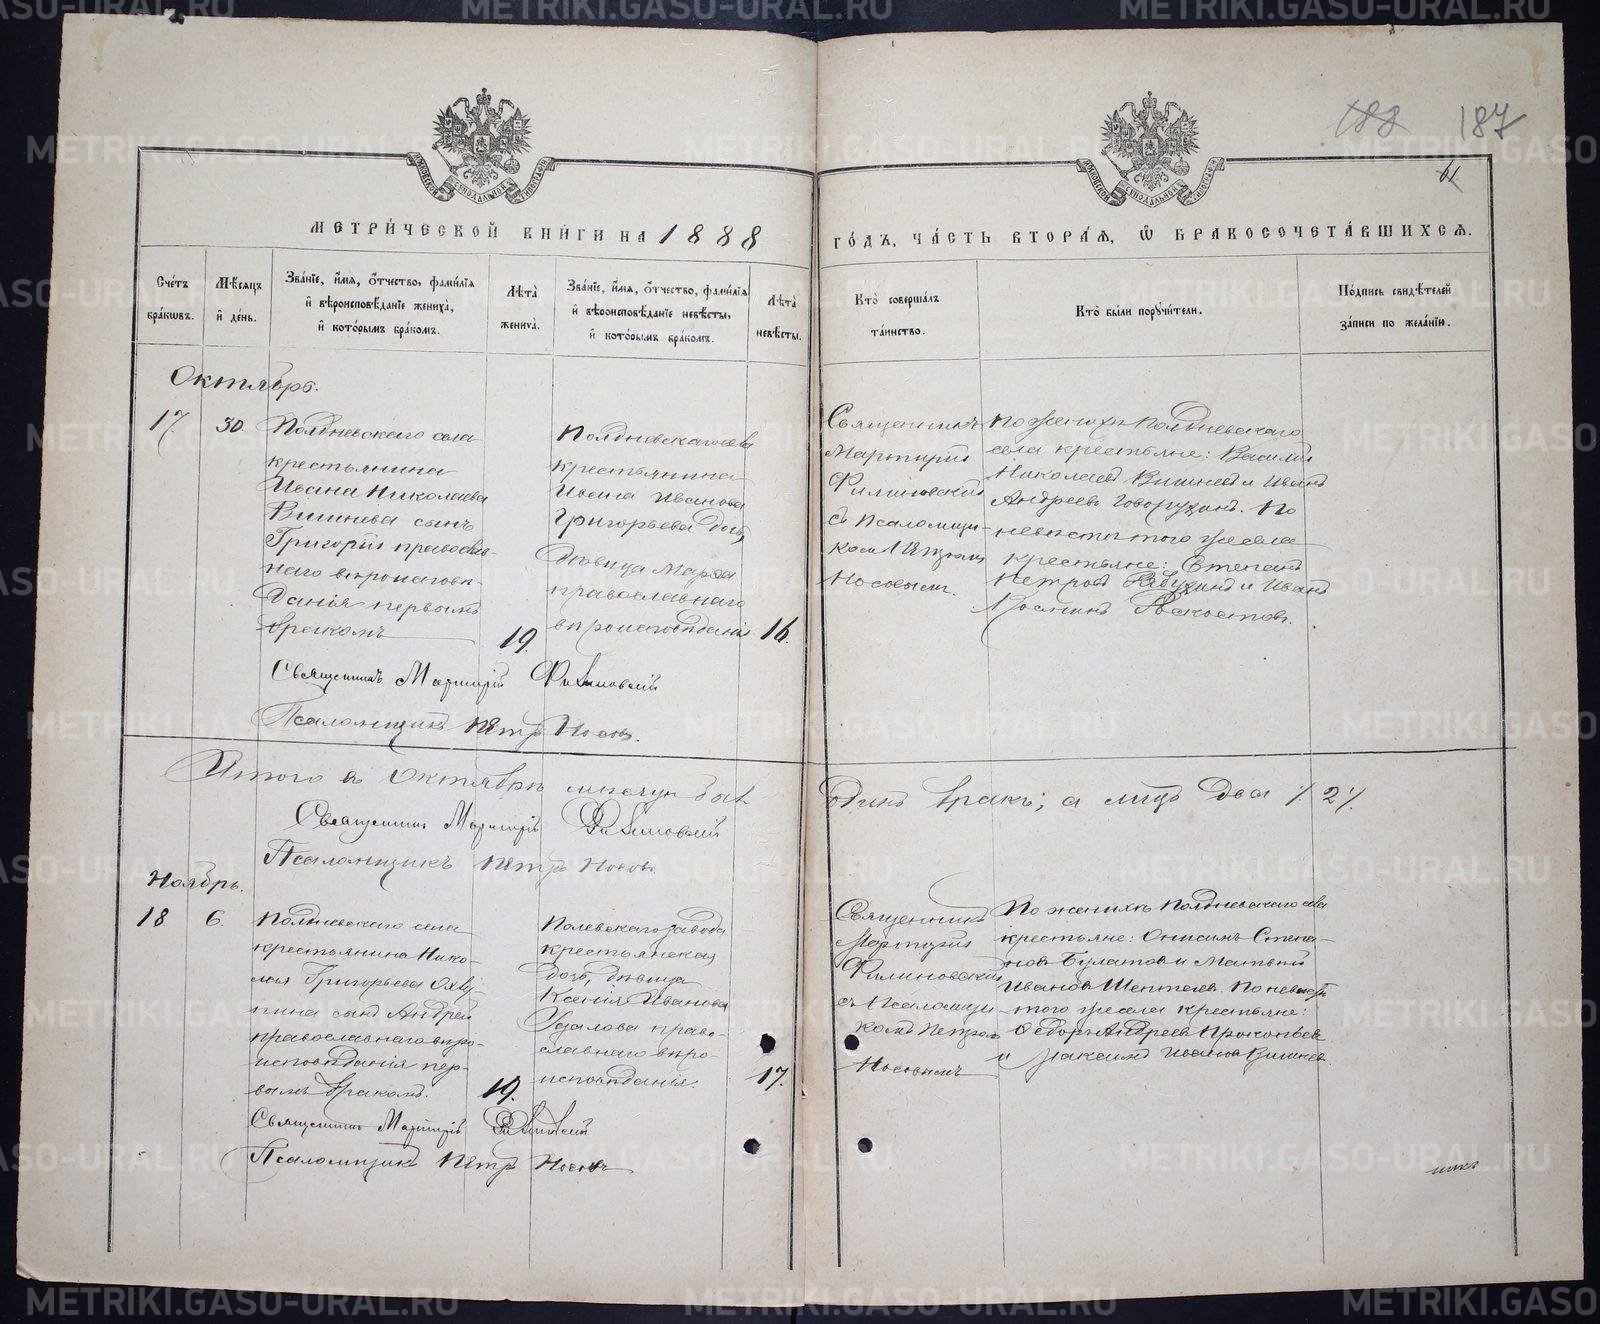 188 187
61
МЕТРИ́ЧЕСКОЙ КНИ́ГИ НА 1888
ГО́ДЪ, ЧА́СТЬ ВТОРА́Я, Ѿ БРАКОСОЧЕТА́ВШИХСЯ.
Сче́тъ бра́кѡвъ.
Мѣ́сяцъ и де́нь.
Зва́нїе, и́мя, о́тчество, фами́лїя и вѣроисповѣ́данїе жениха̀, и кото́рымъ бра́комъ.
Лѣ́та жениха̀.
Зва́нїе, и́мя, о́тчество, фами́лїя и вѣроисповѣ́данїе невѣ́сты, и кото́рымъ бра́комъ.
Лѣ́та невѣ́сты.
Кто̀ соверша́лъ та́инство.
Кто̀ бы́ли поручи́тели.
По́дпись свидѣ́телей за́писи по жела́нїю.
Октябрь.
17. 30.
Полдневскаго села
крестьянина
Ивана Николаева
Вишнева сынъ
Григорій православ-
наго вѣроисповѣ-
данія первымъ
бракомъ
19.
Полдневскаго села
крестьянина
Ивана Иванова
Григорьева дочь,
дѣвица Марѳа
православнаго
вѣроисповѣданія
16.
Священникъ
Мартирій
Филиновскій
съ Псаломщи-
комъ Петромъ
Носовымъ.
По женихѣ Полдневскаго
села крестьяне: Василій
Николаевъ Вишневъ и Иванъ
Андреевъ Говорухинъ. По
невѣстѣ того же села
крестьяне: Степанъ
Петровъ и Иванъ
Священникъ Мартирій Филиновскій
Псаломщикъ Петръ Носовъ.
Итого въ Октябрѣ мѣсяцѣ былъ
Одинъ бракъ; а лицъ два /. 2 /.
Священникъ Мартирій Филиновскій
Псаломщикъ Петръ Носовъ
Ноябрь.
18 6.
Полдневскаго села
крестьянина Нико-
лая Григорьева Охлу-
пина сынъ Андрей
православнаго вѣро-
исповѣданія пер-
вымъ бракомъ.
19.
Полевскаго завода
крестьянская
дочь, дѣвица
Ксенія Иванова
Удалова право-
славнаго вѣро-
исповѣданія.
17.
Священникъ
Мартирій
Филиновскій
съ Псаломщи-
комъ Петромъ
Носовымъ
По женихѣ Полдневскаго села
крестьяне: Онисимъ Степа-
новъ Булатовъ и Матвѣй
Ивановъ Шептаевъ. По невѣстѣ
того же села крестьяне:
Ѳедоръ Андреевъ Прокопьев
и Максимъ Ивановъ Вишневъ
Священникъ Мартирій Филиновскій
Псаломщикъ Петръ Носовъ
METRIKI.GASO-URAL.RU